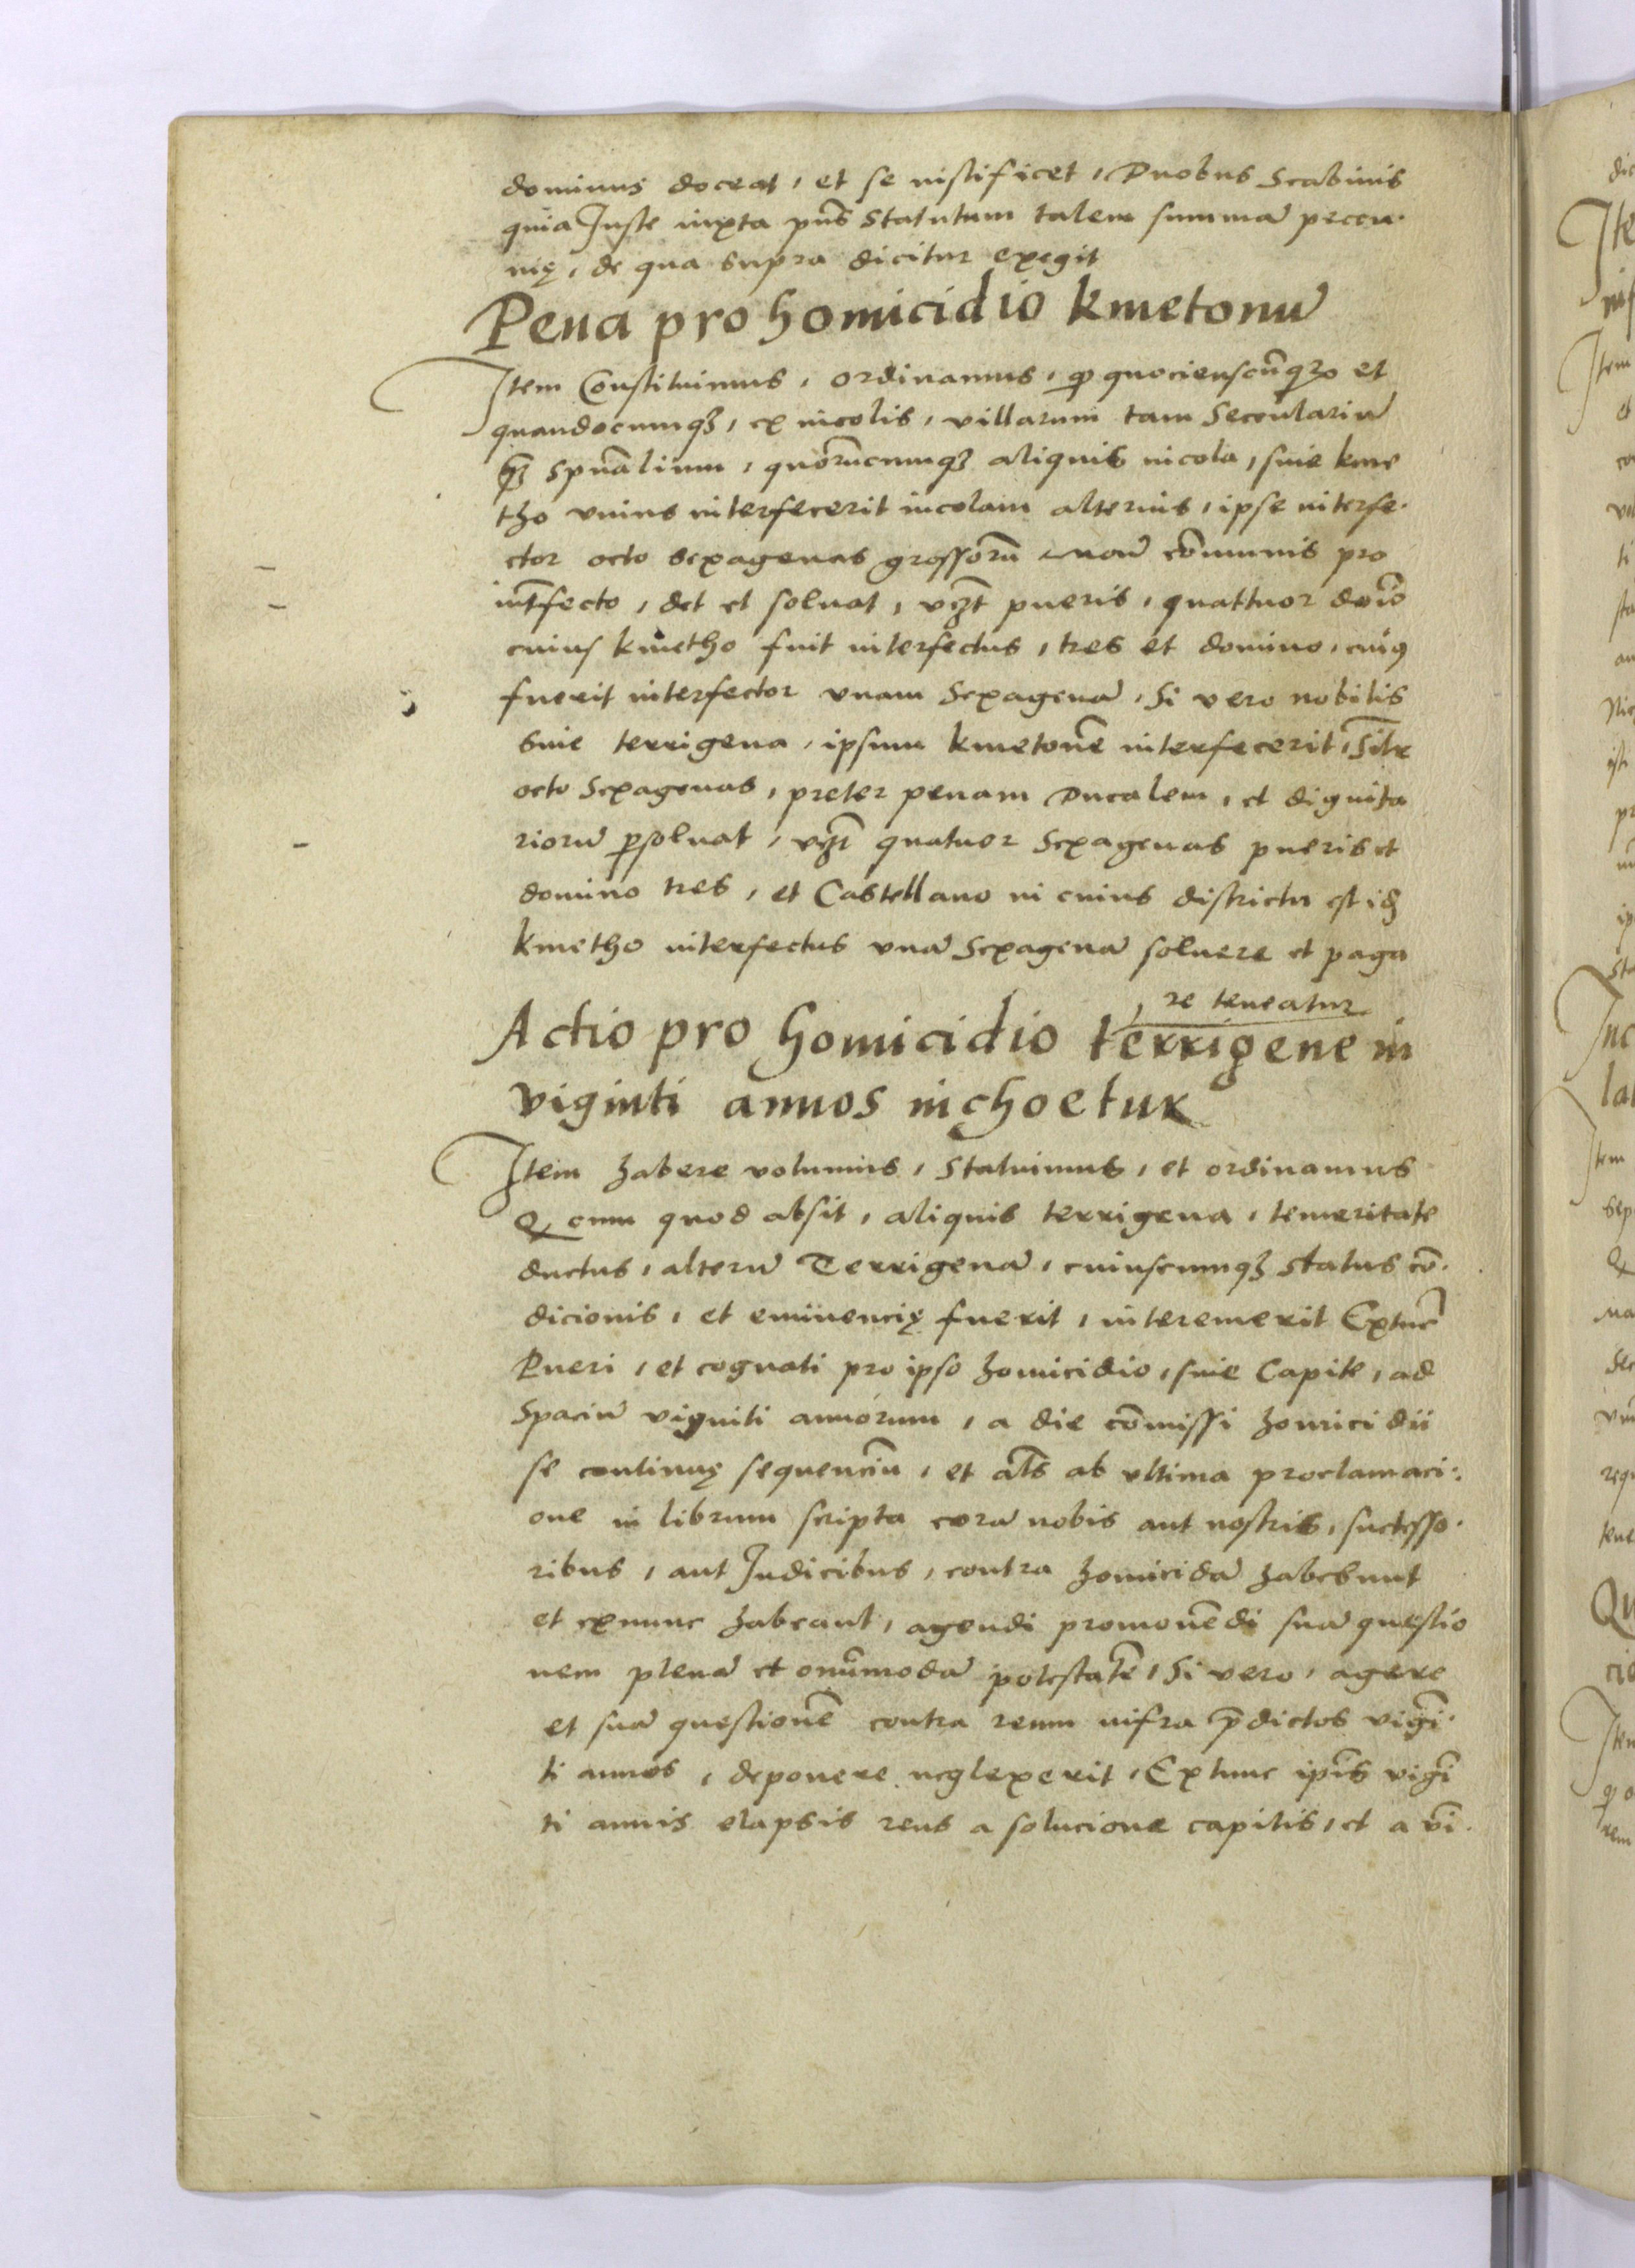 dominus doceat, et se iustificet, Duobus Scabinis
quia Juste iuxta pñs Statutum talem summā peccu·
nię, de qua supra dicitur exegit
Pena pro homicidio kmetonū
Item Constituimus, ordinamus, ꝙ quocienscūqꝫ et
quandocumqꝫ, ex incolis, villarum tam Seculariū
qꝫ spūalium, quorūcumqꝫ aliquis incola, siue kme
tho vnius interfecerit incolam alterius, ipse interfe·
ctor octo sexagenas grossorū mōn cōmunis pro
int̄fecto, det et soluat, vꝫt pueris, quattuor dōīo
cuius kmetho fuit interfectus, tres et domino, cuiꝰ
fuerit interfector vnam Sexagenā, Si vero nobilis
siue terrigena, ipsum kmetonē interfecerit, Sīlr
octo Sexagenas, preter penam Ducalem, et dignita
riorū ꝑsoluat, vꝫt quatuor Sexagenas pueris et
domino tres, et Castellano in cuius districtu est idꝫ
kmetho interfectus vnā Sexagenā soluere et paga
re teneatur
Actio pro homicidio terrigene in
viginti annos inchoetur
Item habere volumus, Statuimus, et ordinamus
Q cum quod absit, aliquis terrigena, temeritate
ductus, alterū Terrigenā, cuiuscumqꝫ status cō·
dicionis, et eminencię fuerit, interemerit Extūc
Pueri, et cognati pro ipso homicidio, siue Capite, ad
Spaciū viginti annorum, a die cōmissi homicidii
se continuę sequenciū, et al̄s ab vltima proclamaci:
one in librum scripta corā nobis aut nostris, successo·
ribus, aut Judicibus, contra homicidā habebunt
et exnunc habeant, agendi promouēdi suā questio
nem plenā et omīmodā potestatē, Si vero, agere
et suā questionē contra reum infra p̄dictos vigī·
ti annos, deponere neglexerit, Extunc ip̄is vigī
ti annis elapsis reus a solucione capitis, et a vī·